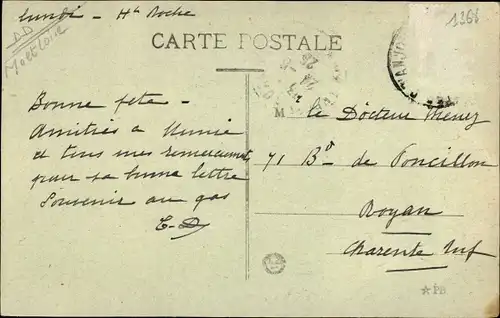 Lundi - Hte Roche
CARTE POSTALE
1366
Bonne fête -
Amitiés à Mimie
et tous mes remerciements
pour sa bonne lettre
Souvenir au gas
E-D
M le Docteur Menez
71 Bd de Poncillon
Royan
Charente Inf
PB